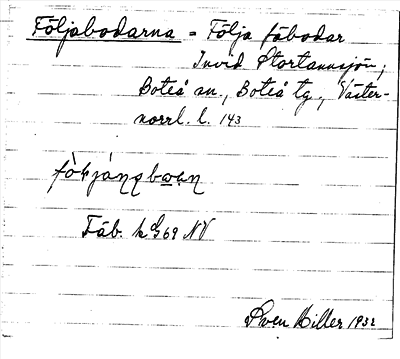 Följabodarna = Följa fäbodar
Invid Stortannsjön,
Boteå sn., Boteå tg., Väster-
norrl. l. 143
Fäb. k G69 NV
Sven Hiller 1932